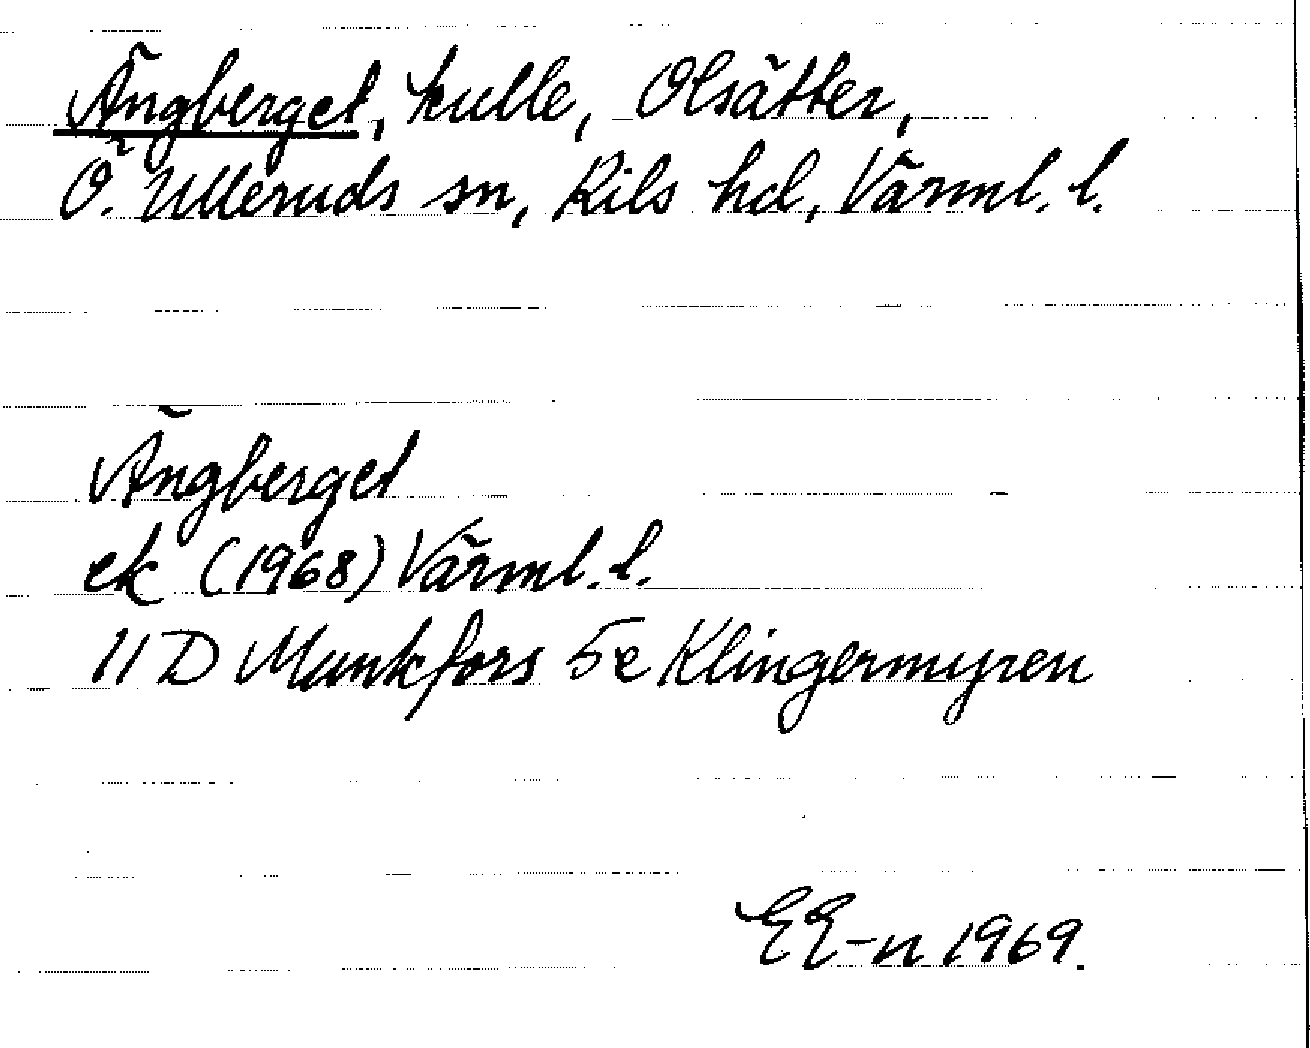 Ängberget, kulle, Olsätter,
Ö. Ulleruds sn, Kils hd, Värml. l.
Ängberget
ek (1968) Värml. l.
11 D Munkfors 5e Klingermyren
EE-n 1969.